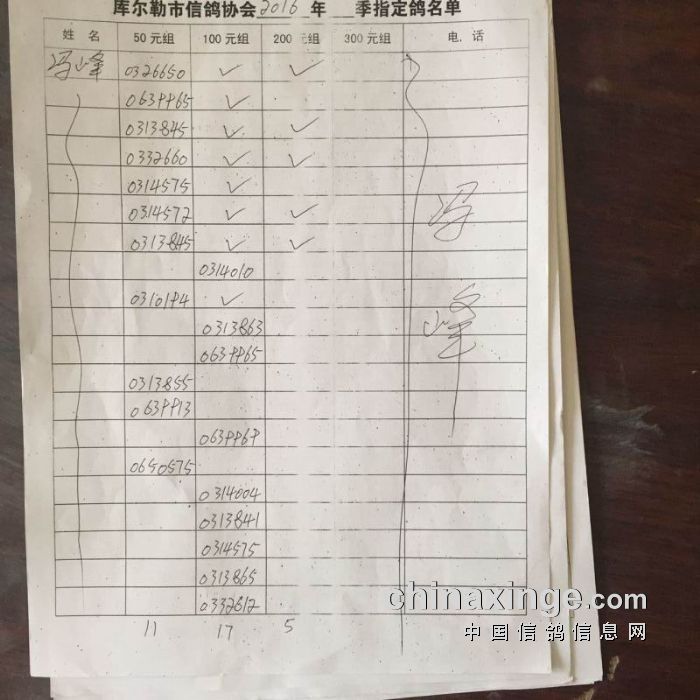 库尔勒市信鸽协会2016年 季指定鸽名单
姓 名 50元组 100元组 200元组 300元组 电 话
冯峰 0326650 ✓ ✓
0639965 ✓
0313845 ✓ ✓
0332660 ✓ ✓
0314575 ✓
0314572 ✓ ✓
0313845 ✓ ✓
0314010
0310194 ✓
0313863
0639965
0313855
0639913
0639969
0650575
0314004
0313841
0314575
0313865
0332612
11 17 5
冯
峰
chinaxinge.com
中国信鸽信息网